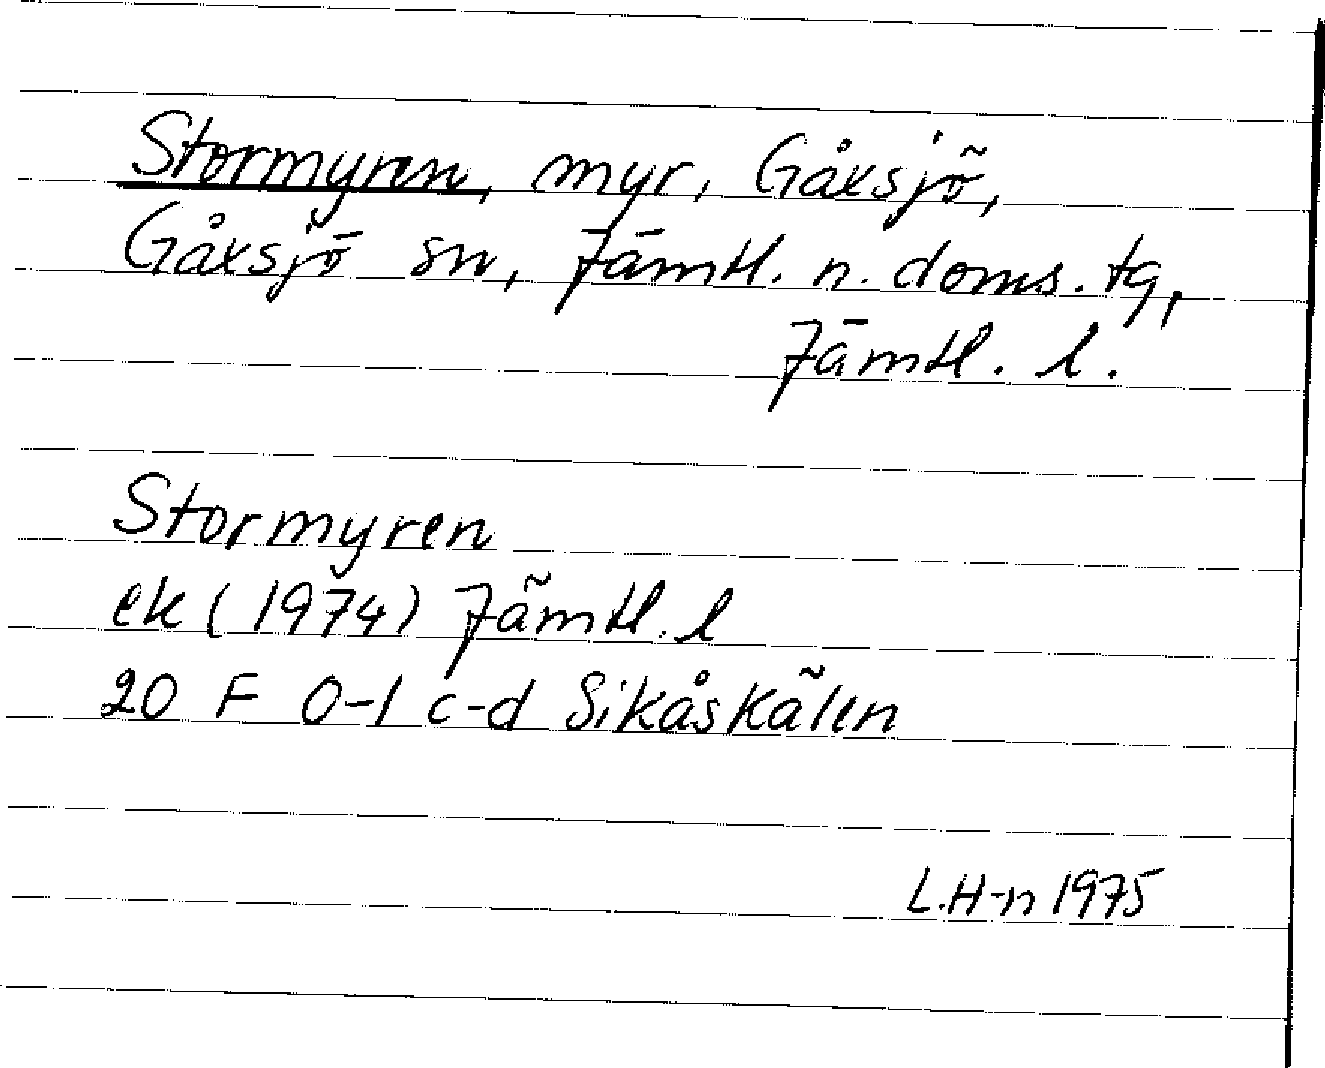 Stormyren, myr, Gåxsjö,
Gåxsjö sn, Jämtl. n. doms. tg,
Jämtl. l.
Stormyren
ek (1974) Jämtl. l
20 F 0-1 c-d Sikåskälen
L.H-n 1975